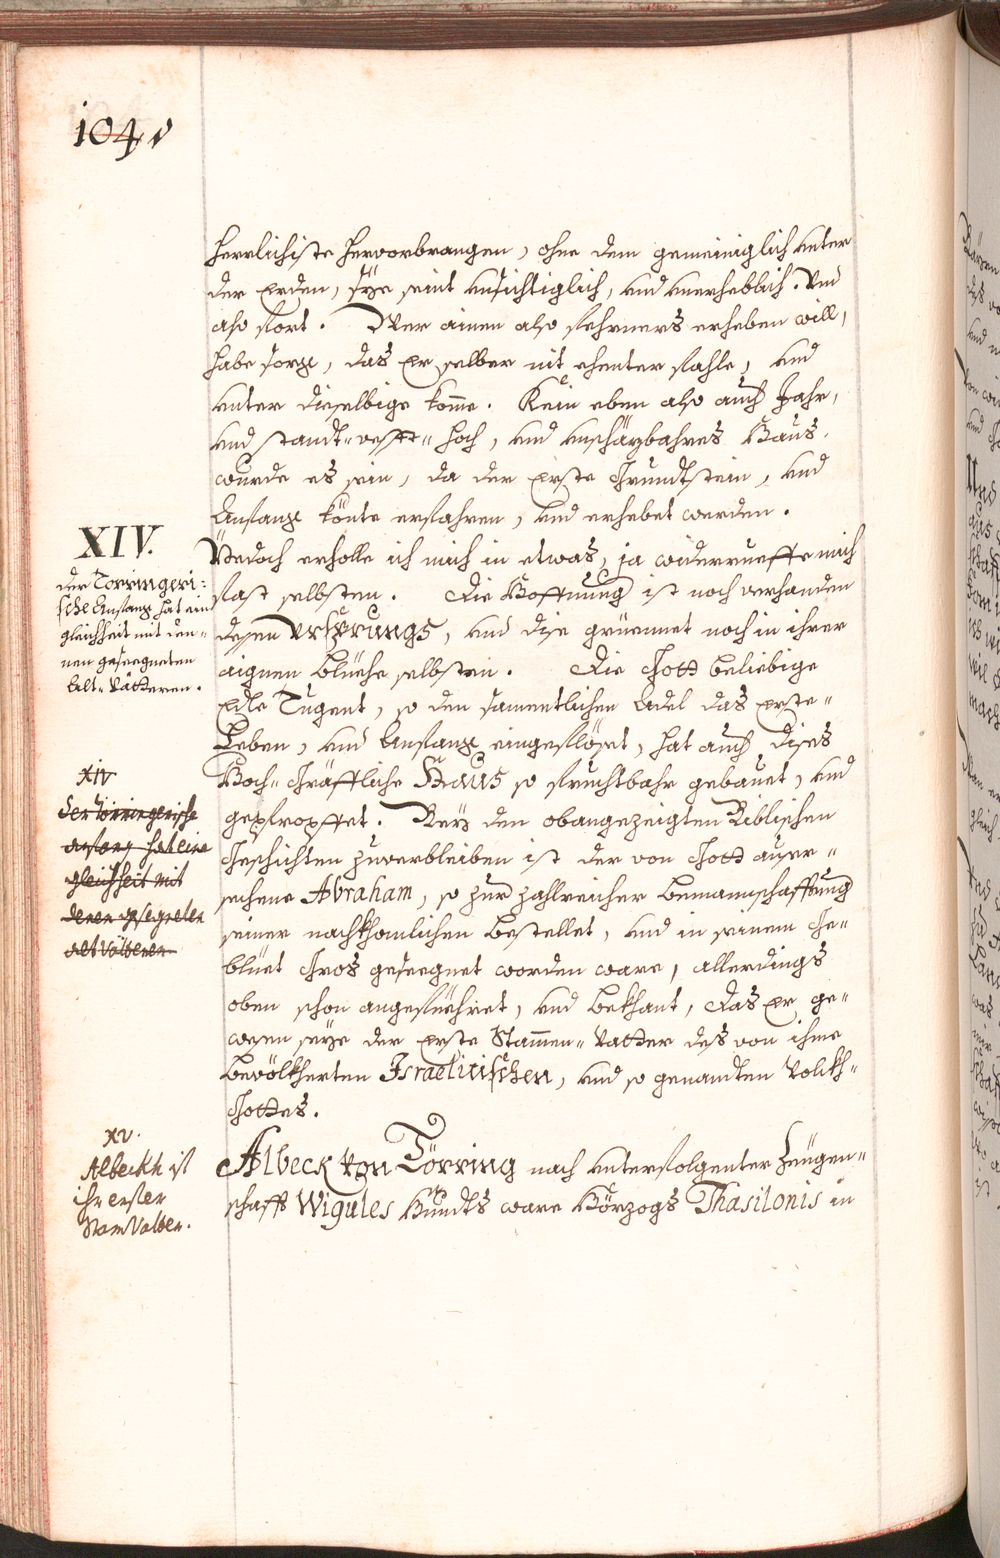 104v
herrlichiste hervorbrangen, ohne dem gemeiniglich unter
der Erden, sÿe seint unsichtiglich, und unerheblich. Und
also fort. Wer ainen also fehrners erheben will,
habe sorg, das Er selber nit ehenter fahle, und
unter dieselbige komme. Kein eben also auch Jahr,
und standt- vesst- hoch, und unschäzbahres Haus,
wurde es sein, da der Erste Grundtstein, und
Anfang könte erfahren, und erhebet werden.
XIV.
der Törringeri-
sche Anfang hat ein
gleichheit mit den-
nen geseegneten
Alt-Vätteren.
Jedoch erholle ich mich in etwas, ja widerrueffe mich
fast selbsten. Die Hoffnung ist noch verhanden
desen Ursprungs, und dise grüennet noch in ihrer
aignen blüehe selbsten. Die Gott beliebige
Edle Tugent, so den samentlichen Adel das Erste
Leben, und Anfang eingeflöset, hat auch dises
Hoch- Gräffliche Haus so fruchtbahr gebauet, und
gepfropffet. Beÿ den obangezeigten Biblischen
Geschichten zuverbleiben ist der von Gott auser-
sehene Abraham, so zur zahlreicher bemannschaffung
seiner nachkhomlichen bestellet, und in seinem Ge-
blüet Gros geseegnet worden ware, allerdings
oben schon angeführet, und bekhant, das Er ge-
wesen seÿe der Erste Stammen-Vatter des von ihme
bevölkherten Israelitischen, und so genandten Volckh
Gottes.
xiv
der törringerische
anfang hat eine
gleichheit mit
denen gesegneten
alt Vätteren
xv.
Albeckh ist
ihr erster
StamVatter.
Albeck von Törring nach unterfolgenter Zeügen-
schafft Wigules Hundts ware Hörzogs Thasilonis in